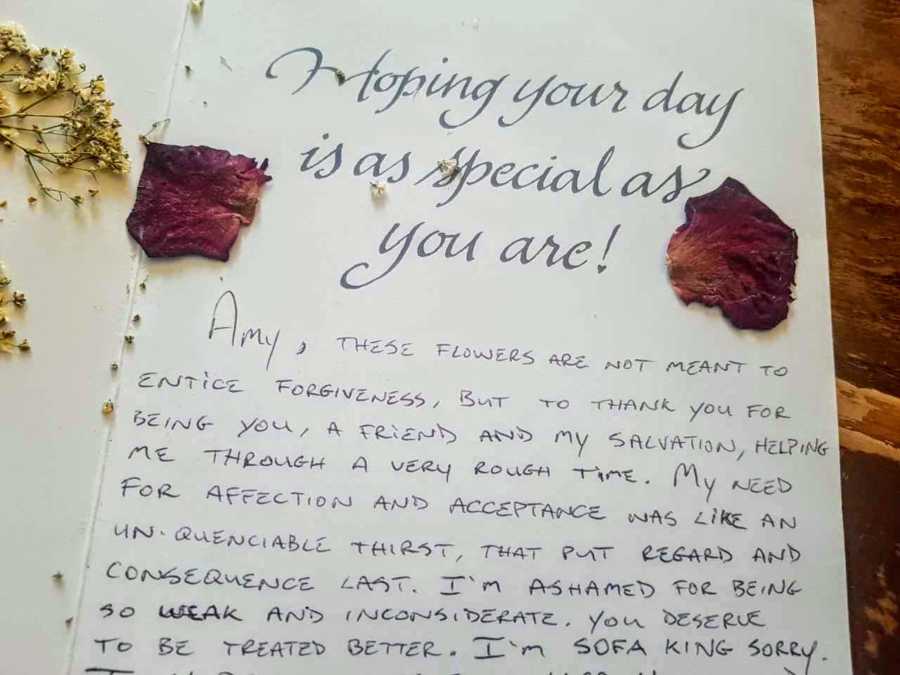 Hoping your day
is as special as
you are!
Amy, THESE FLOWERS ARE NOT MEANT TO
ENTICE FORGIVENESS, BUT TO THANK YOU FOR
BEING YOU, A FRIEND AND MY SALVATION, HELPING
ME THROUGH A VERY ROUGH TIME. MY NEED
FOR AFFECTION AND ACCEPTANCE WAS LIKE AN
UN-QUENCIABLE THIRST, THAT PUT REGARD AND
CONSEQUENCE LAST. I'M ASHAMED FOR BEING
SO WEAK AND INCONSIDERATE. YOU DESERVE
TO BE TREATED BETTER. I'M SOFA KING SORRY.